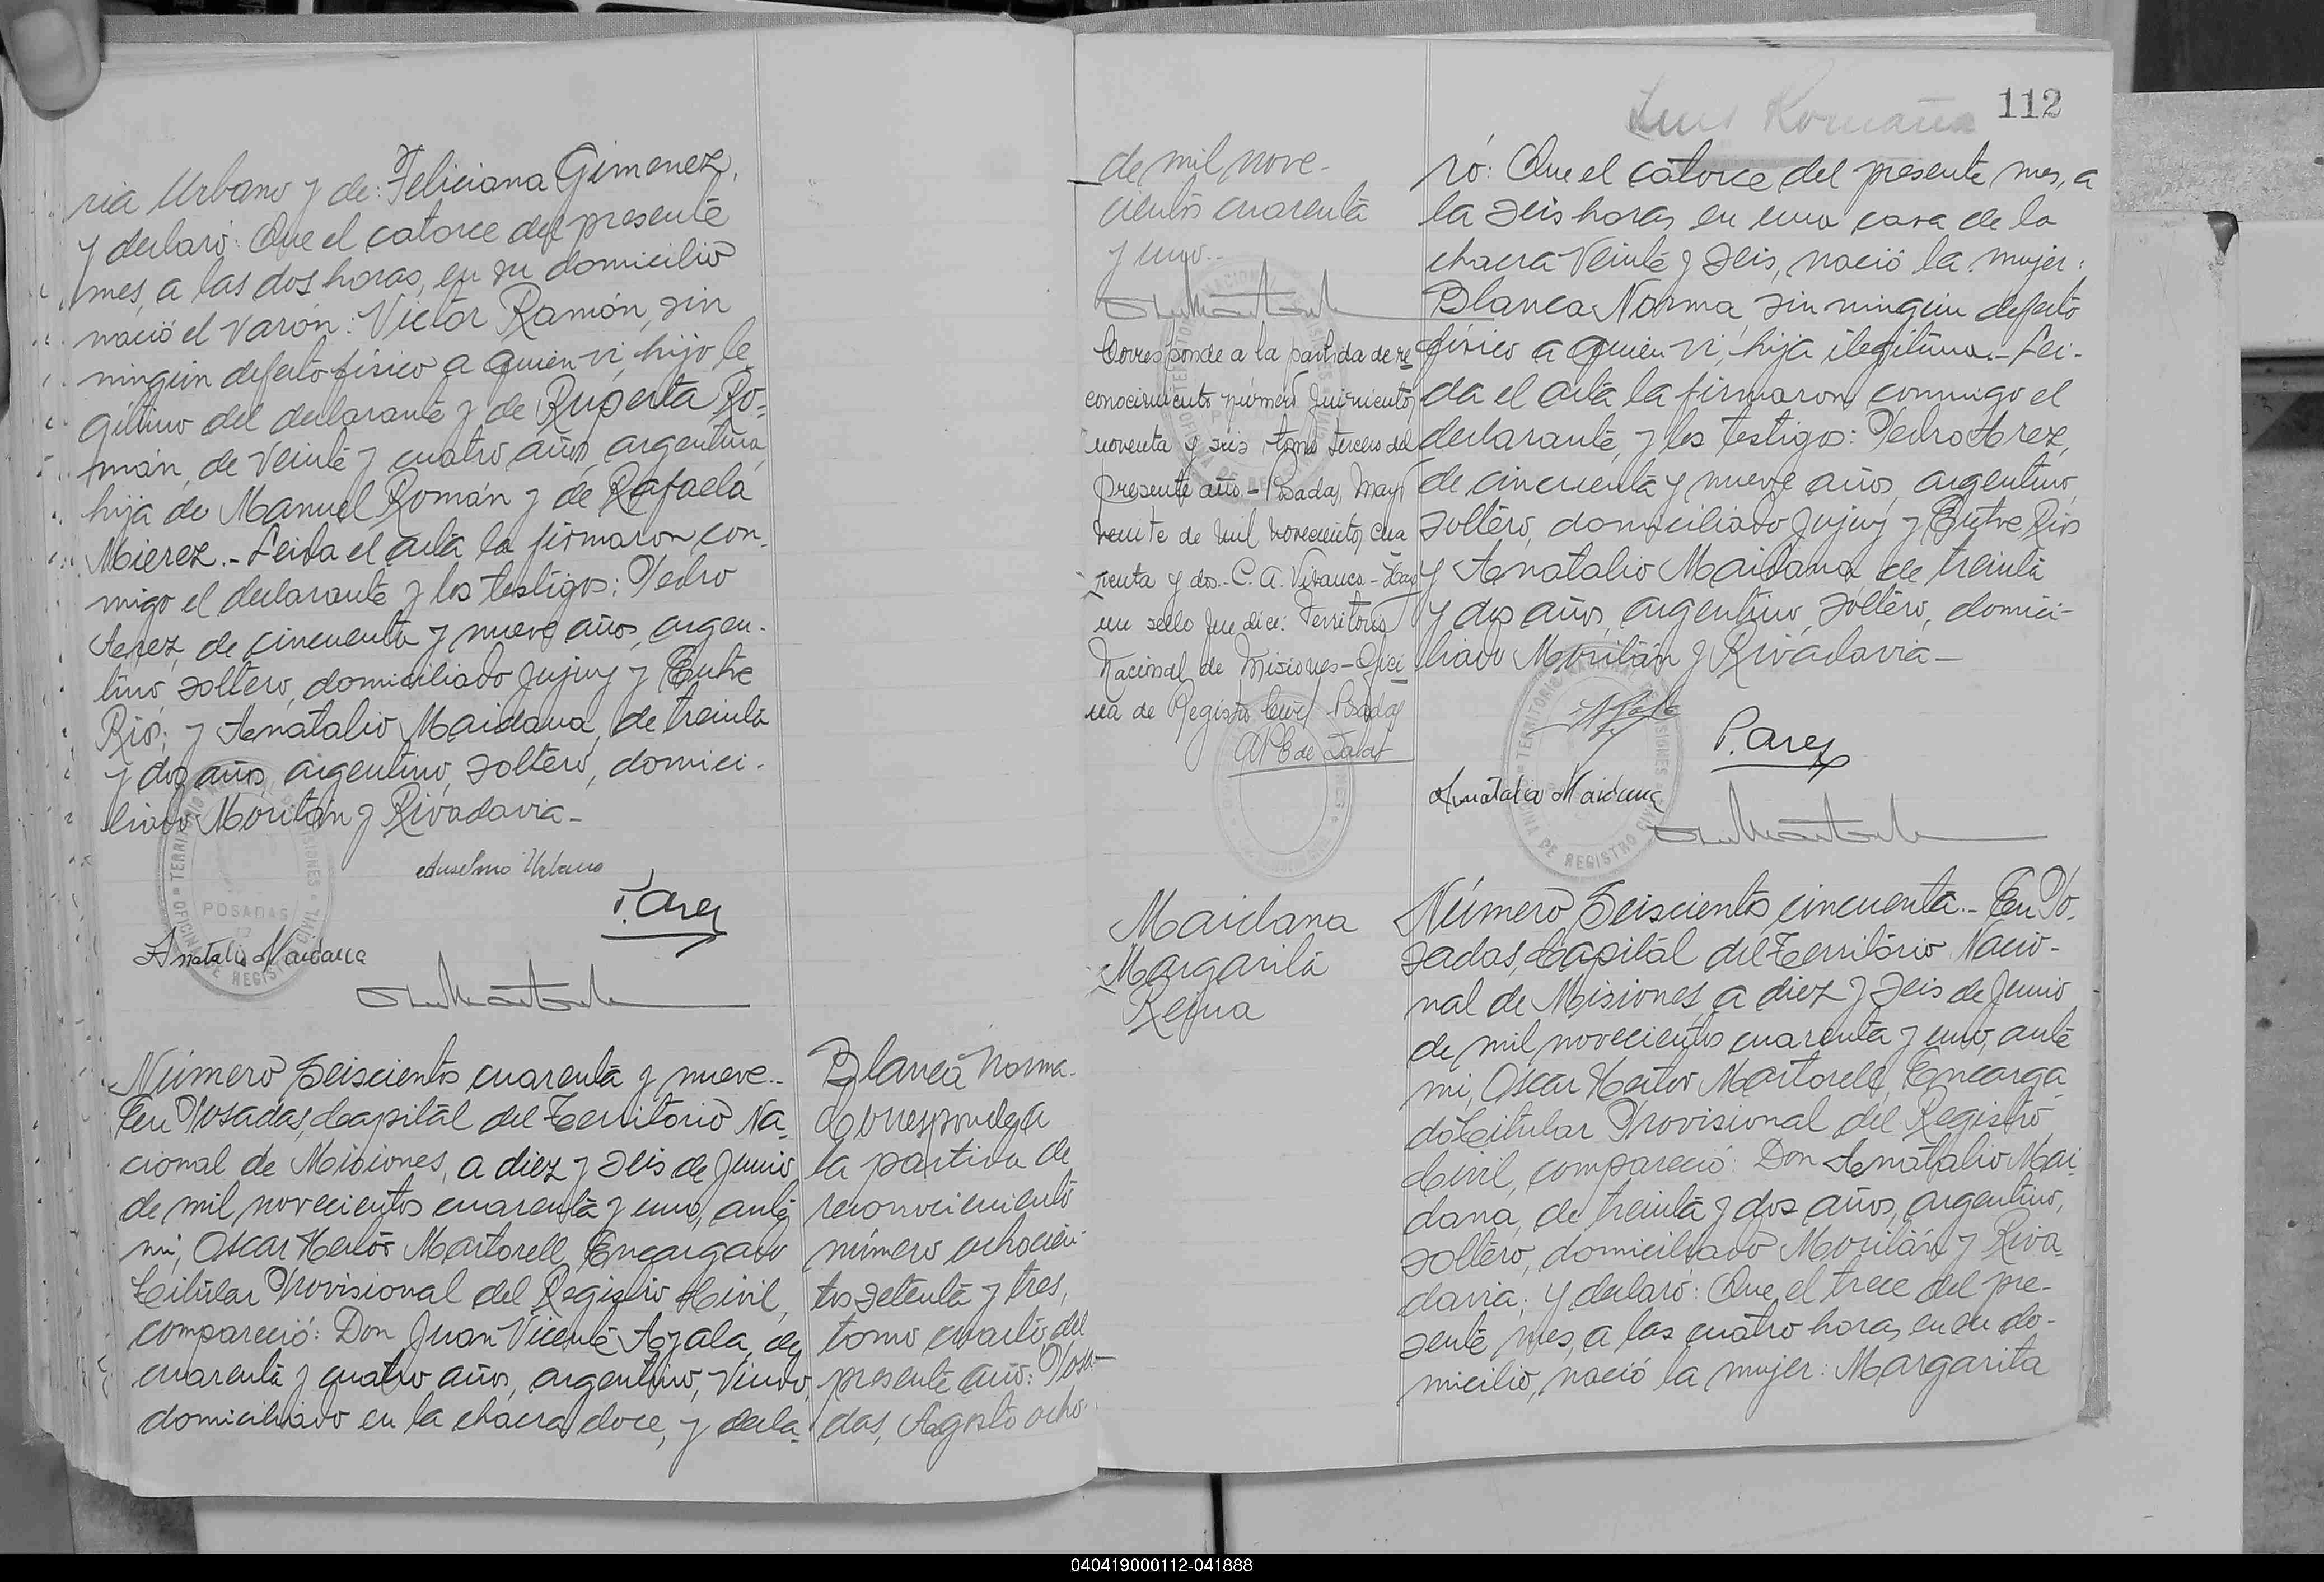 ria Urbano y de: Feliciana Gimenez,
y declaró: Que el catorce del presente
mes, a las dos horas, en su domicilio
nació el varón: Victor Ramón, sin
ningún defecto físico a quien vi, hijo le
gitimo del declarante y de Ruperta Ro=
mán, de veinte y cuatro años, argentina,
hija de Manuel Román y de Rafaela
Mierez.- Leida el acta la firmaron con-
migo el declarante y los testigos: Pedro
Arez, de cincuenta y nueve años, argen-
tino, soltero, domiciliado Jujuy y Entre
Rios; y Anatalio Maidana, de treinta
y dos años, argentino, soltero, domici-
liado Moritán y Rivadavia-
Anselmo Urbano
P. Arez
Anatalio Maidana
POSADAS
Número Seiscientos cuarenta y nueve.-
En Posadas, Capital del Territorio Na-
cional de Misiones, a diez y seis de Junio
de mil novecientos cuarenta y uno, ante
mi, Oscar Hector Martorell, Encargado
Titular Provisional del Registro Civil,
compareció: Don Juan Vicente Ayala, de
cuarenta y cuatro años, argentino, viudo,
domiciliado en la chacra doce, y decla-
Blanca Norma.-
Corresponde a
la partida de
reconocimiento
número ochocien-
tos setenta y tres,
tomo cuarto del
presente año: Posa-
das, Agosto ocho
112
Luis Romaña
de mil nove-
cientos cuarenta
y uno.-
Corresponde a la partida de re
conocimiento número Quinientos
noventa y seis, tomo tercero del
presente año - Posadas, Mayo
veinte de mil novecientos cua
renta y dos.- C. A. Vivanco - Hay
un sello que dice: Territorio
Nacional de Misiones - Ofici
na de Registro Civil - Posadas
ró: Que el catorce del presente mes, a
la seis horas, en una casa de la
chacra Veinte y seis, nació la mujer:
Blanca Norma, sin ningún defecto
físico a quien vi, hija ilegitima.- Lei-
da el acta la firmaron conmigo el
declarante, y los testigos: Pedro Arez,
de cincuenta y nueve años, argentino,
soltero, domiciliado Jujuy y Entre Rios
y Anatalio Maidana, de treinta
y dos años, argentino, soltero, domici-
liado Moritán y Rivadavia-
P. Arez
Anatalio Maidana
Maidana
Margarita
Reina
Número Seiscientos cincuenta.- En Po-
sadas, Capital del Territorio Nacio-
nal de Misiones, a diez y seis de Junio
de mil novecientos cuarenta y uno, ante
mi, Oscar Hector Martorell, Encarga-
do Titular Provisional del Registro
Civil, compareció: Don Anatalio Mai
dana, de treinta y dos años, argentino,
soltero, domiciliado Moritán y Riva-
davia; y declaró: Que el trece del pre-
sente mes, a las cuatro horas, en su do-
micilio, nació la mujer: Margarita
040419000112-041888